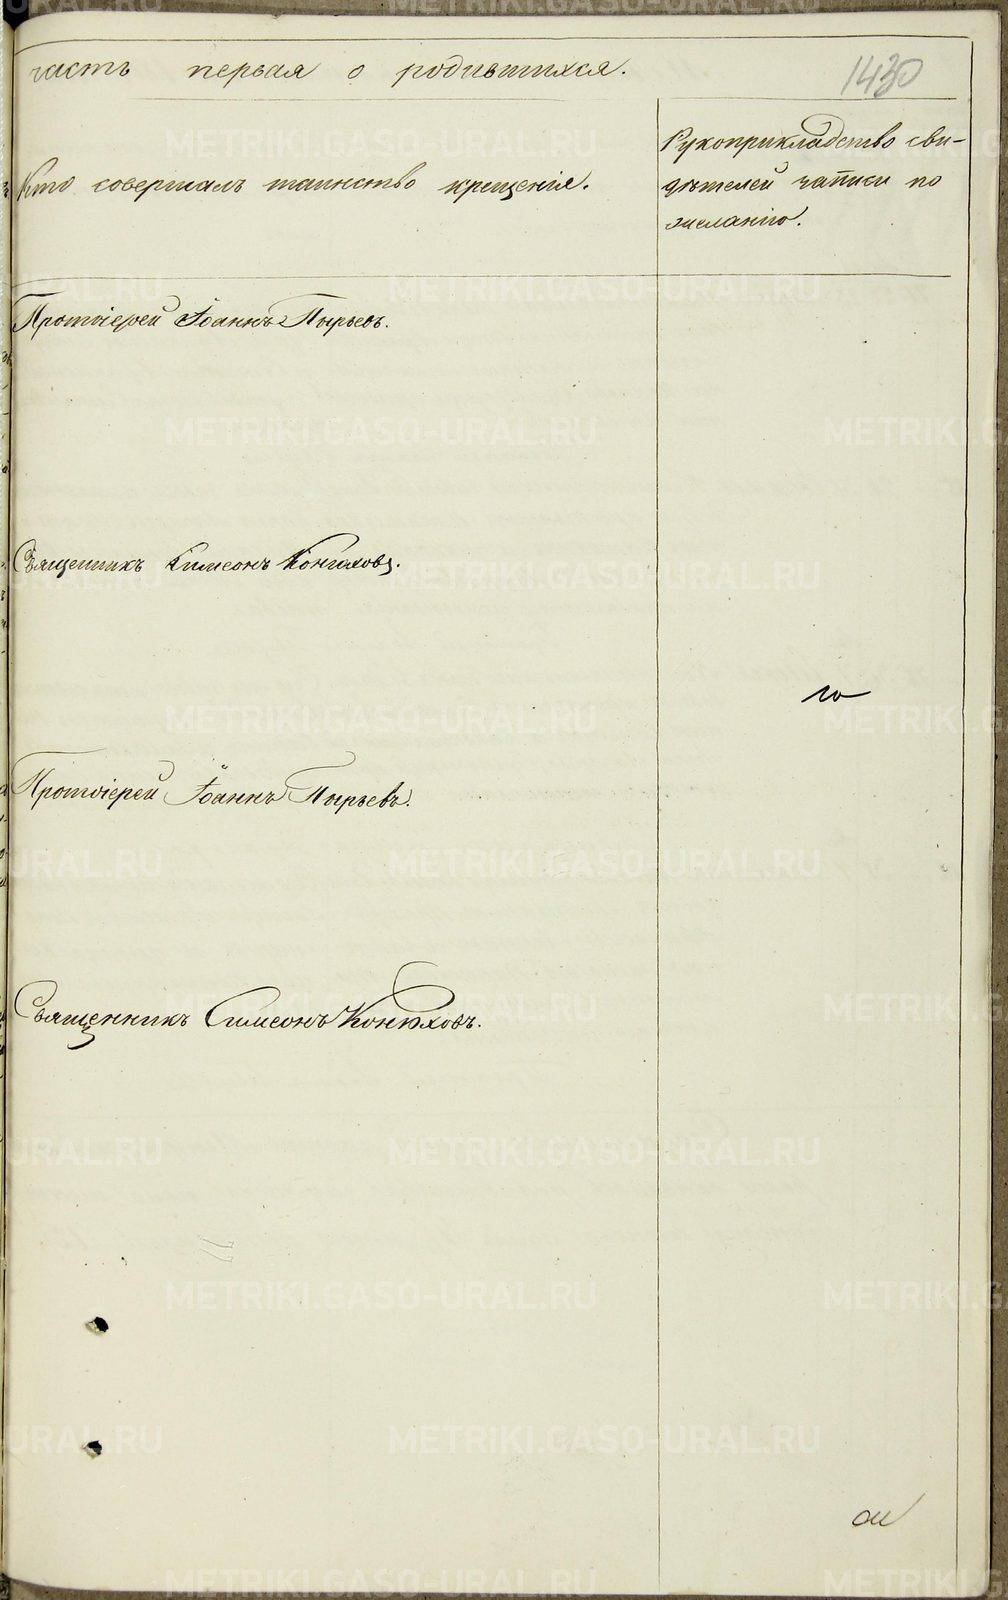 часть первая о родившихся.
1430
Кто совершалъ таинство крещенія.
Рукоприкладство сви-
дѣтелей записи по
желанію.
Протоіерей Іоаннъ Пырьевъ.
Священникъ Симеонъ Конюховъ.
Протоіерей Іоаннъ Пырьевъ.
Священникъ Симеонъ Конюховъ.
METRIKI.GASO-URAL.RU